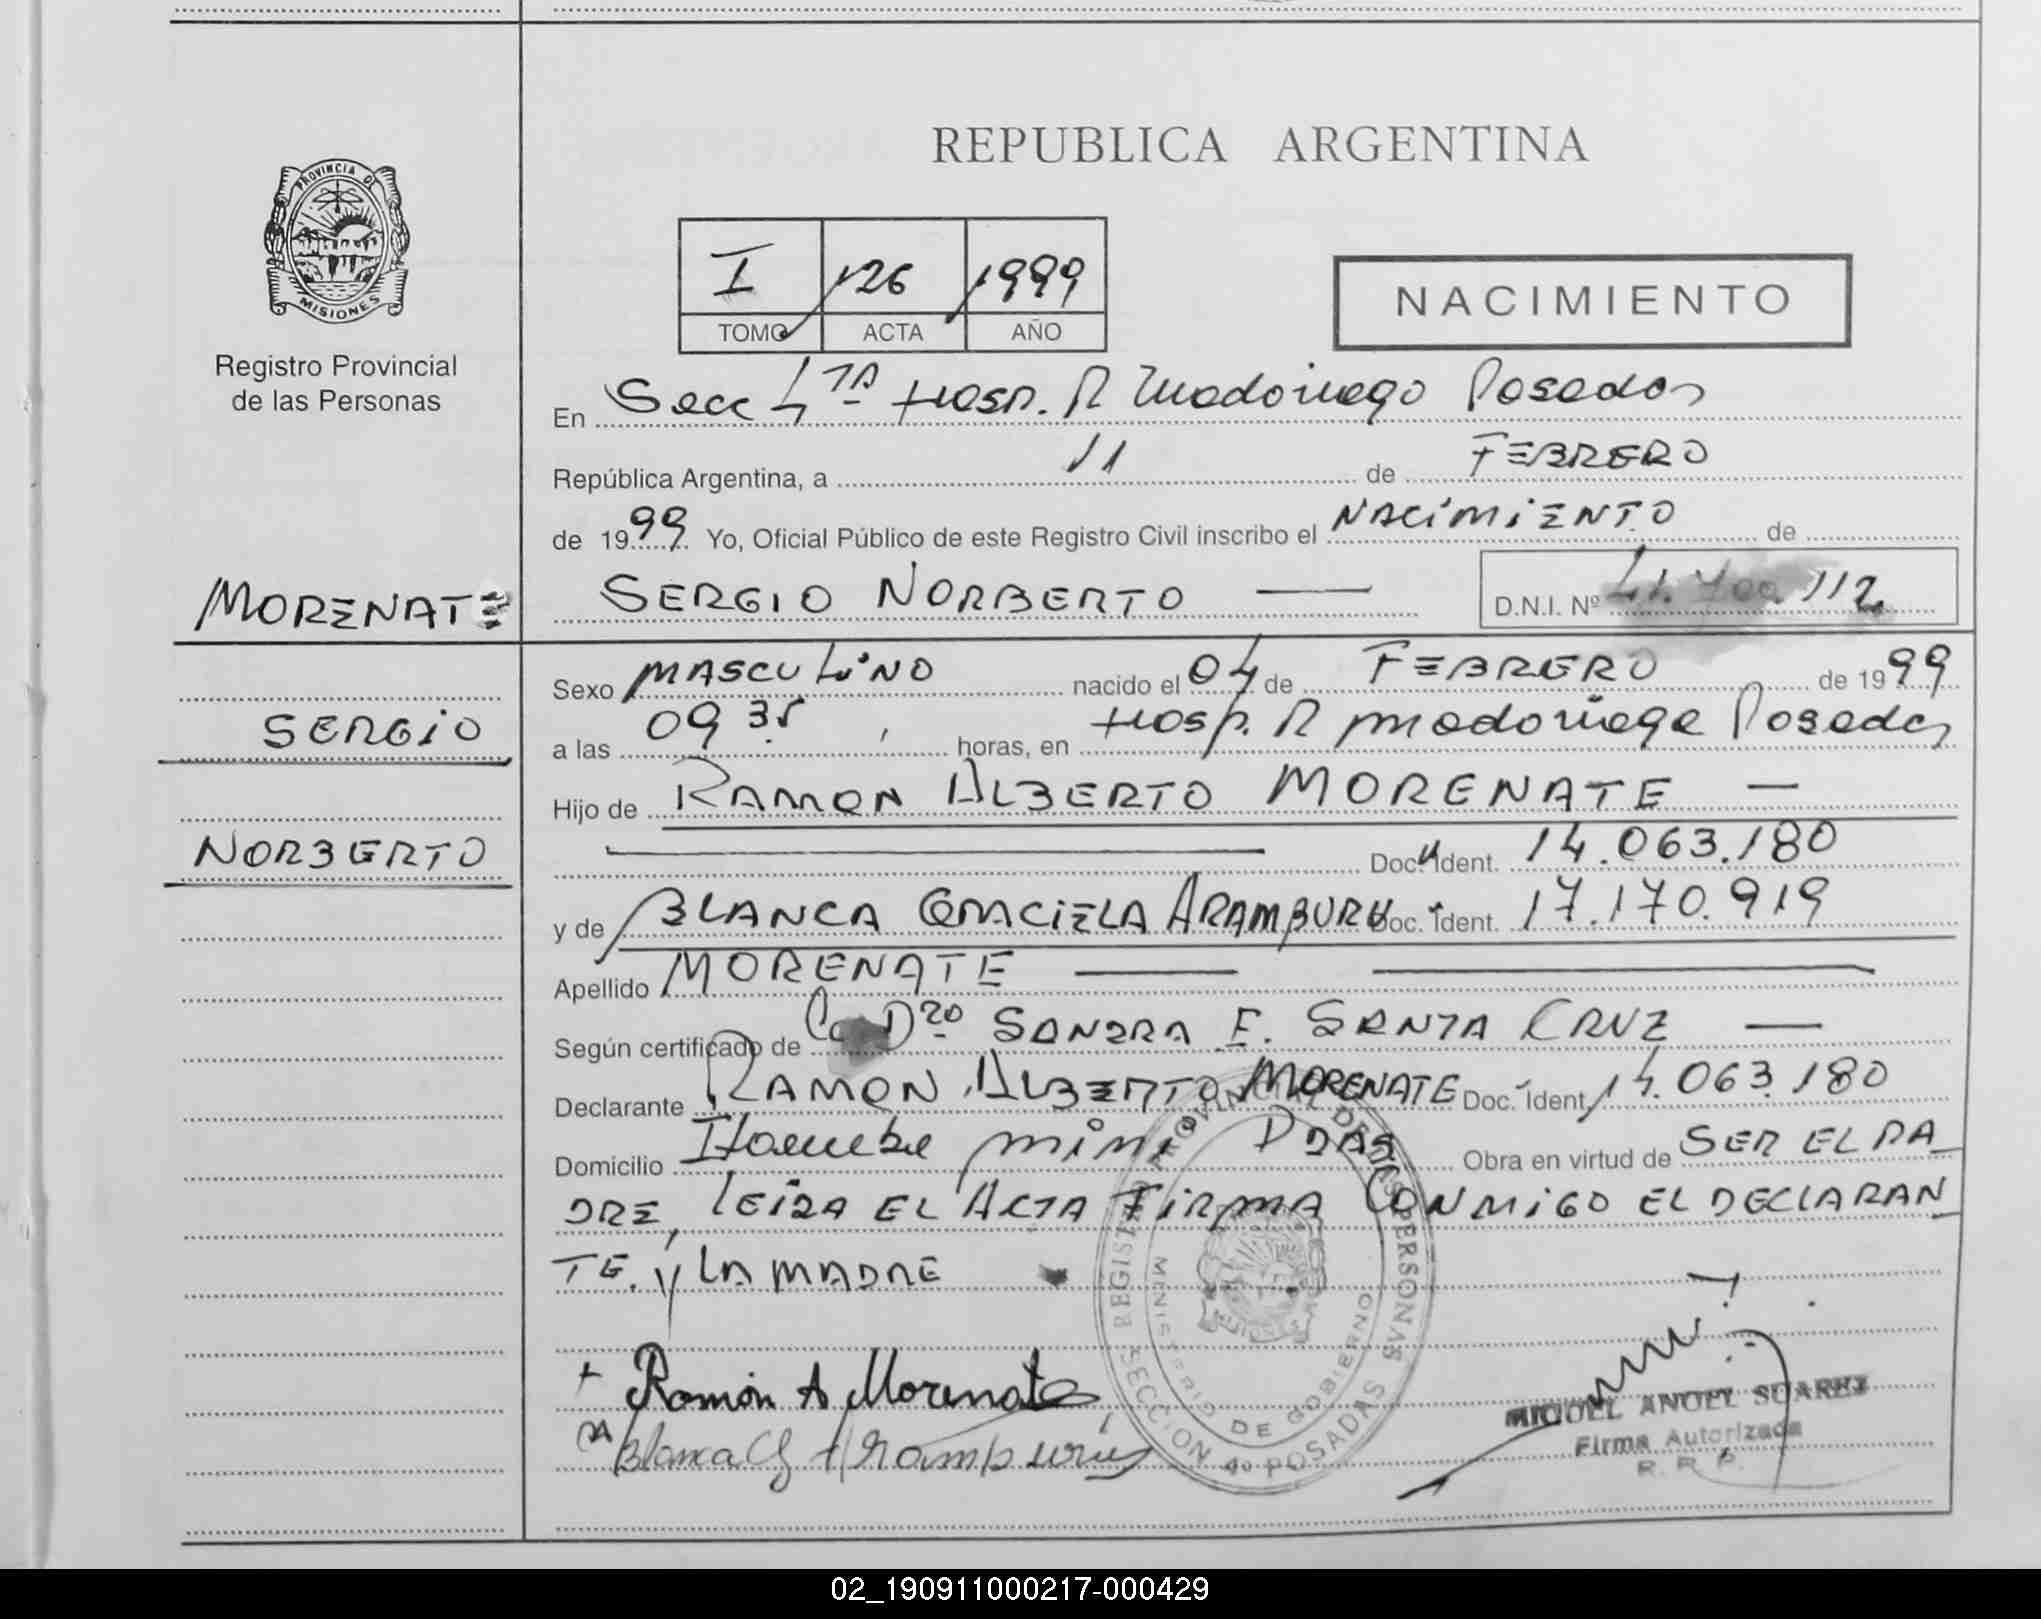 REPUBLICA ARGENTINA
PROVINCIA DE
MISIONES
Registro Provincial
de las Personas
I 126 1999
TOMO ACTA AÑO
NACIMIENTO
En Secc 4TA Hosp. R Madariaga Posadas
República Argentina, a 11 de FEBRERO
de 1999 Yo, Oficial Público de este Registro Civil inscribo el NACIMIENTO de
MORENATE
SERGIO NORBERTO
D.N.I. Nº 41. 112
SERGIO
NORBERTO
Sexo MASCULINO nacido el 04 de FEBRERO de 1999
a las 09 35 horas, en Hosp. R Madariaga Posadas
Hijo de RAMON ALBERTO MORENATE
Doc. Ident. 14.063.180
y de BLANCA GRACIELA ARAMBURU Doc. Ident. 17.170.919
Apellido MORENATE
Según certificado de DRA SANDRA E. SANTA CRUZ
Declarante RAMON ALBERTO MORENATE Doc. Ident. 14.063.180
Domicilio MINI Obra en virtud de SER EL PA
DRE, LEIDA EL ACTA FIRMA CONMIGO EL DECLARAN
TE. y LA MADRE
REGISTRO PROVINCIAL DE LAS PERSONAS
MINISTERIO DE GOBIERNO
SECCION 4º POSADAS
Ramón A Morenate
Blanca G Aramburu
MIGUEL ANGEL SUAREZ
Firma Autorizada
R. R. P.
02_190911000217-000429